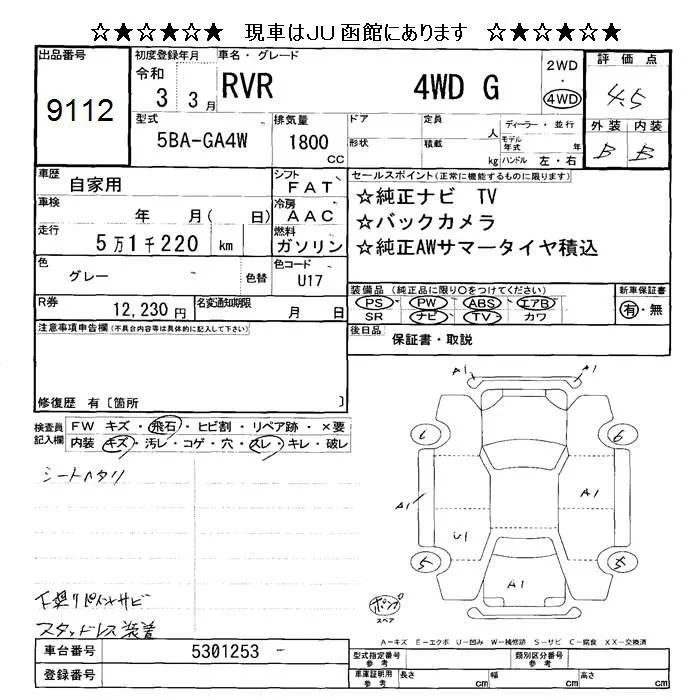 ☆★☆★☆★ 現車はＪＵ函館にあります ☆★☆★☆★
出品番号
9112
初度登録年月
令和
3 3月
車名・グレード
RVR 4WD G
2WD
・
4WD
評価点
4.5
外装 内装
B B
型式
5BA-GA4W
排気量
1800
CC
ドア
形状
定員
人
積載
kg
ディーラー・並行
モデル年式 年
ハンドル 左・右
車歴
自家用
シフト
FAT
車検
年 月( 日)
冷房
AAC
走行
5万1千220 km
燃料
ガソリン
色
グレー
色替
色コード
U17
R券
12,230円
名変通知期限
月 日
セールスポイント(正常に機能するものに限ります)
☆純正ナビ TV
☆バックカメラ
☆純正AWサマータイヤ積込
装備品 (純正品に限り○をつけてください)
PS・PW・ABS・エアB
SR ナビ・TV・カワ
新車保証書
有・無
後日品
保証書・取説
注意事項申告欄(不具合内容等は具体的に記入して下さい)
修復歴 有[箇所 ]
検査員記入欄
FW キズ・飛石・ヒビ割・リペア跡・×要
内装 キズ・汚レ・コゲ・穴・スレ・キレ・破レ
シートヘタリ
下廻りペイントサビ
スタッドレス装着
A1 A1
6 6
A1 A1
U1
5 5
A1
ポンプ
スペア
A－キズ E－エクボ U－凹み W－補修跡 S－サビ C－腐食 XX－交換済
車台番号
5301253
登録番号
型式指定番号
参考
類別区分番号
参考
車庫証明用
参考
長さ cm 幅 cm 高さ cm